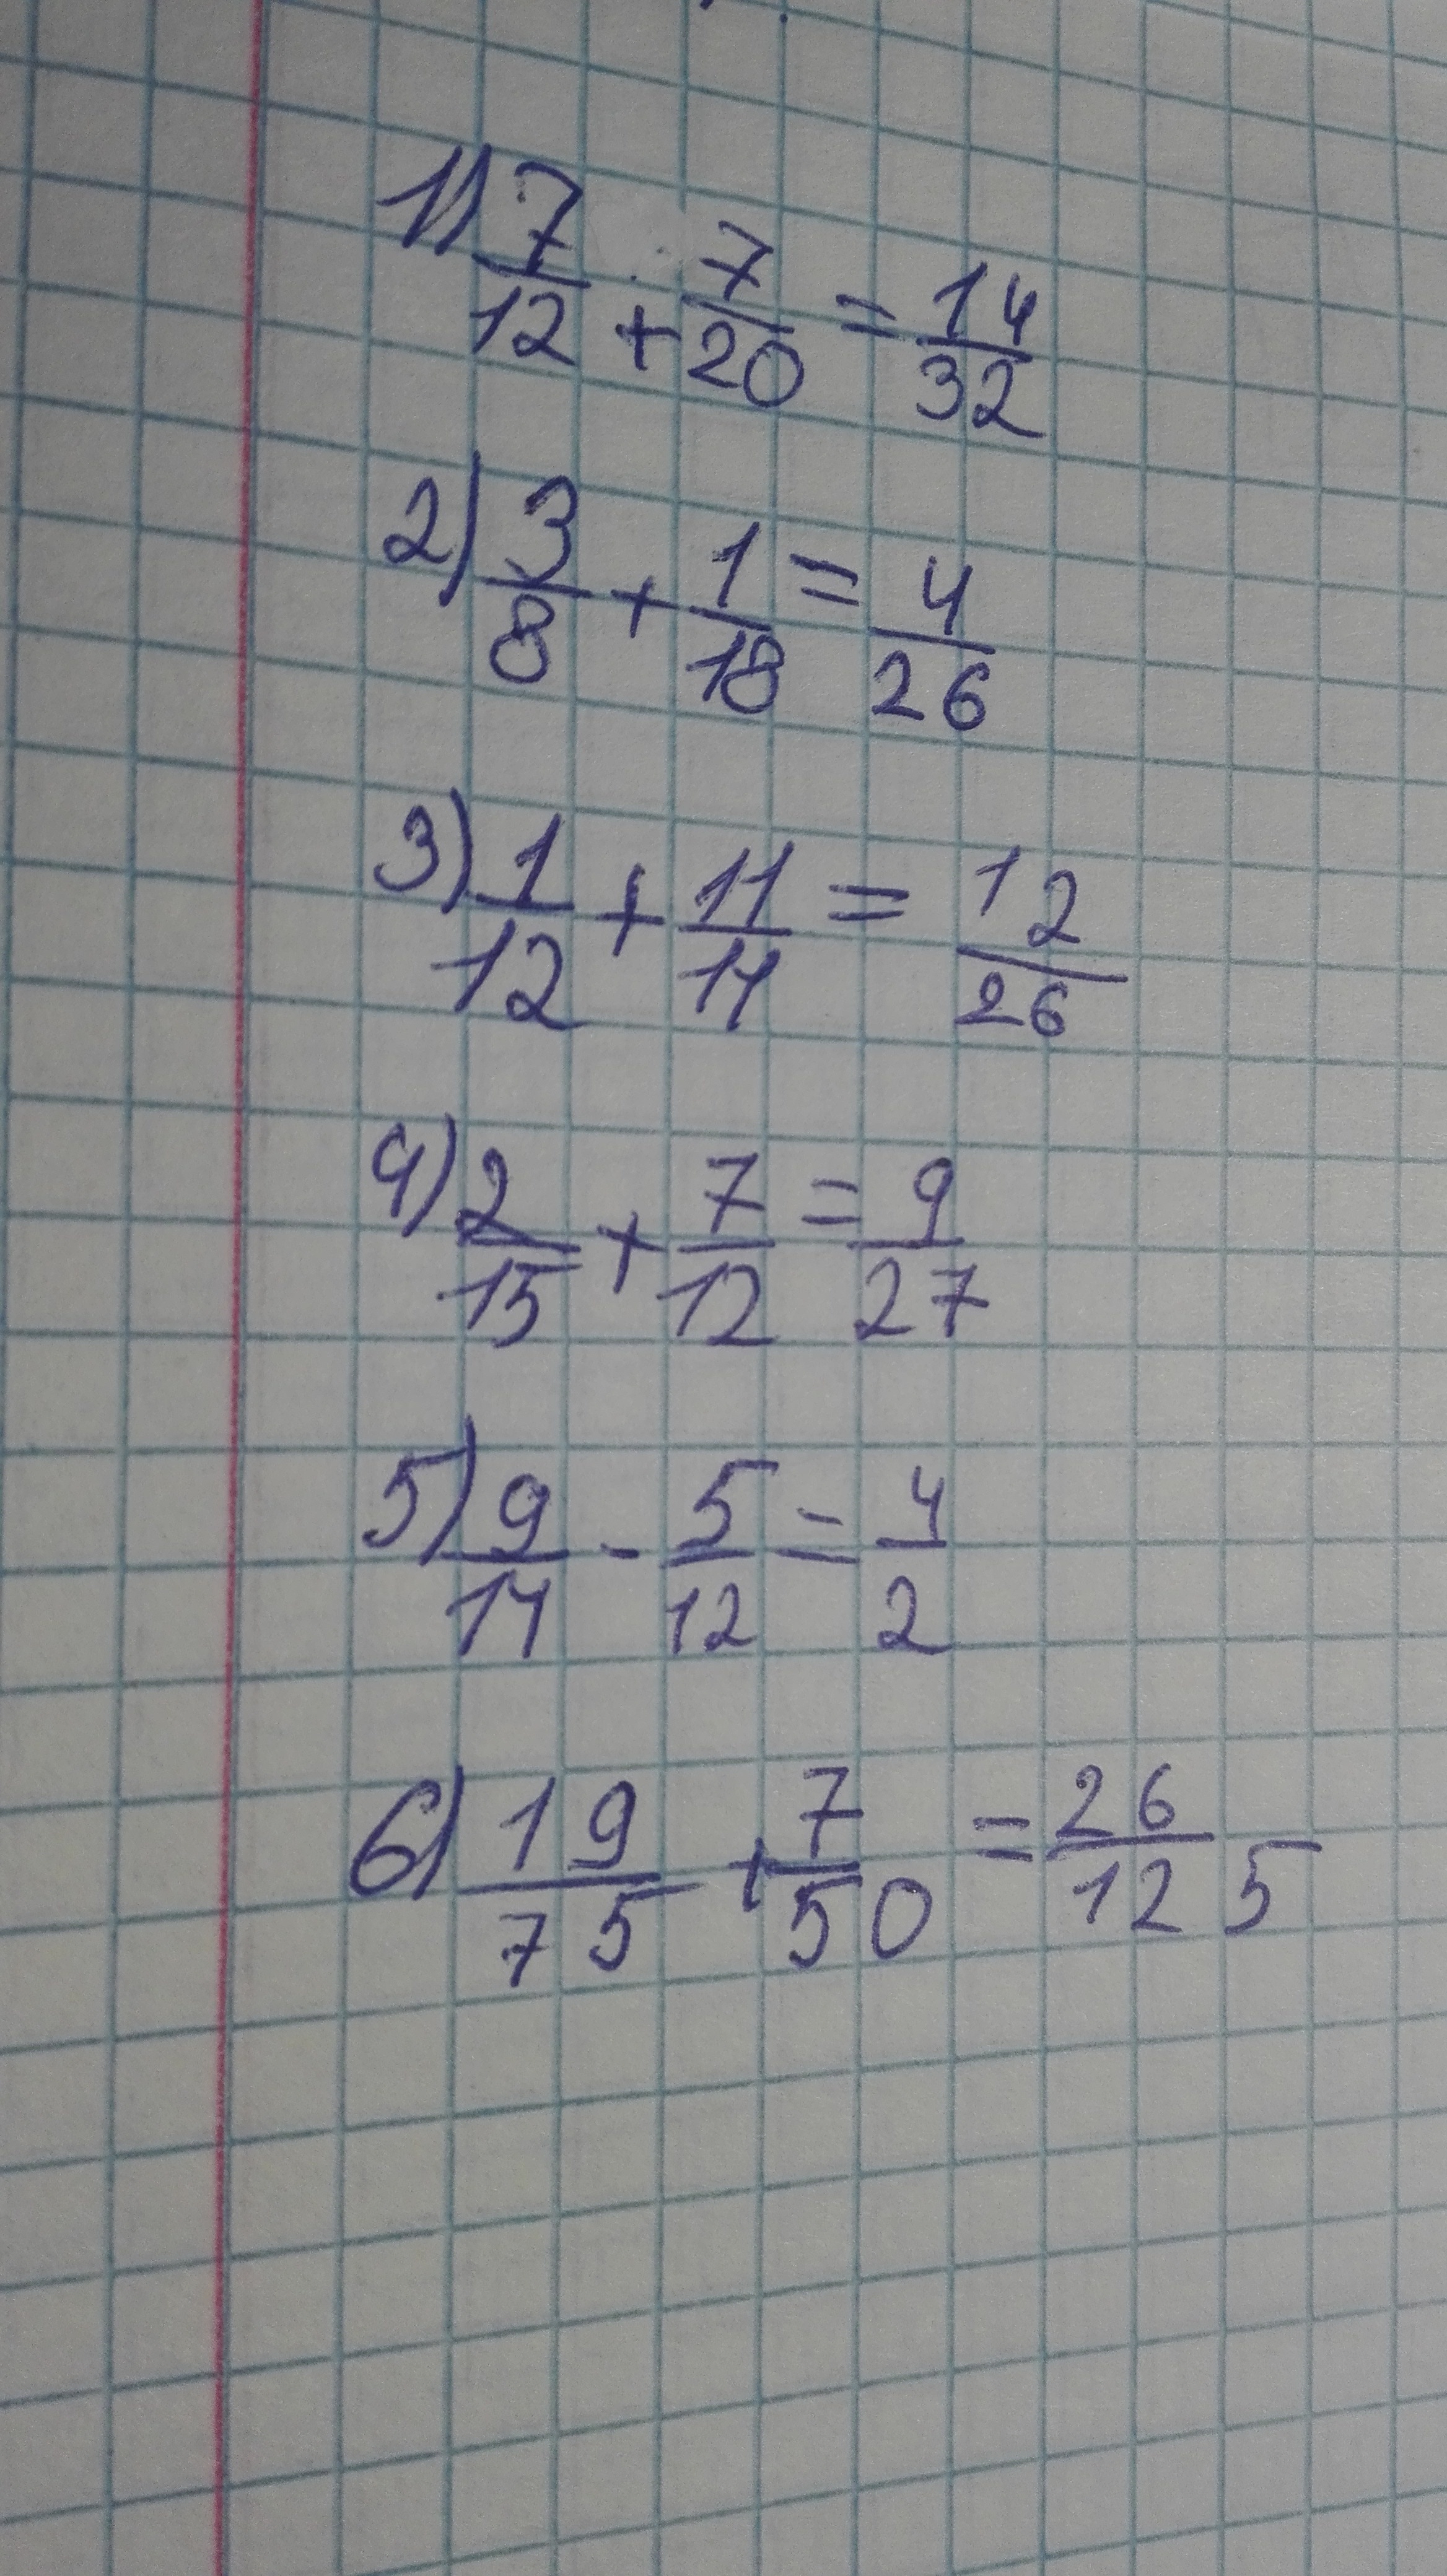 1) 7/12 + 7/20 = 14/32
2) 3/8 + 1/18 = 4/26
3) 1/12 + 11/14 = 12/26
4) 2/15 + 7/12 = 9/27
5) 9/14 - 5/12 = 4/2
6) 19/75 + 7/50 = 26/125